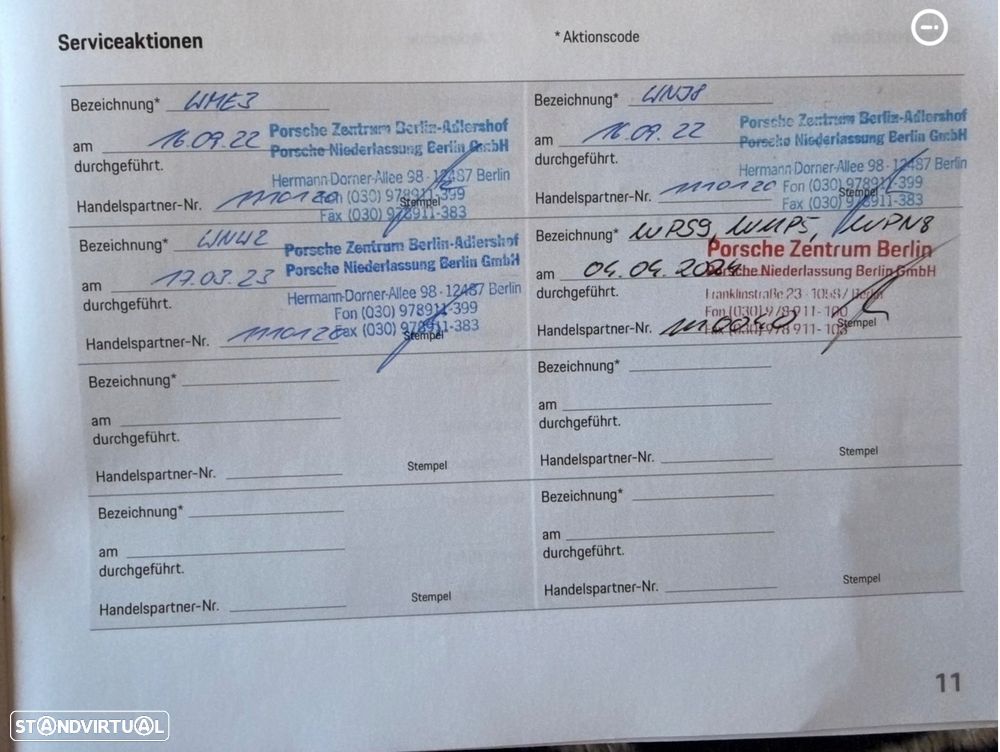 Serviceaktionen
* Aktionscode
Bezeichnung* WME3
am 16.09.22
durchgeführt.
Handelspartner-Nr. 1110120
Porsche Zentrum Berlin-Adlershof
Porsche Niederlassung Berlin GmbH
Hermann-Dorner-Allee 98 · 12487 Berlin
Fon (030) 978911-399
Fax (030) 978911-383
Stempel
Bezeichnung* WNJ8
am 16.09.22
durchgeführt.
Handelspartner-Nr. 1110120
Porsche Zentrum Berlin-Adlershof
Porsche Niederlassung Berlin GmbH
Hermann-Dorner-Allee 98 · 12487 Berlin
Fon (030) 978911-399
Fax (030) 978911-383
Stempel
Bezeichnung* WNU2
am 17.03.23
durchgeführt.
Handelspartner-Nr. 1110120
Porsche Zentrum Berlin-Adlershof
Porsche Niederlassung Berlin GmbH
Hermann-Dorner-Allee 98 · 12487 Berlin
Fon (030) 978911-399
Fax (030) 978911-383
Stempel
Bezeichnung* WPS9, WMP5, WPN8
am 04.04.2024
durchgeführt.
Handelspartner-Nr.
Porsche Zentrum Berlin
Porsche Niederlassung Berlin GmbH
Franklinstraße 23 · 10587 Berlin
Fon (030) 978 911 - 100
Fax (030) 978 911 - 103
Stempel
Bezeichnung*
am
durchgeführt.
Handelspartner-Nr.
Stempel
Bezeichnung*
am
durchgeführt.
Handelspartner-Nr.
Stempel
Bezeichnung*
am
durchgeführt.
Handelspartner-Nr.
Stempel
Bezeichnung*
am
durchgeführt.
Handelspartner-Nr.
Stempel
11
STANDVIRTUAL